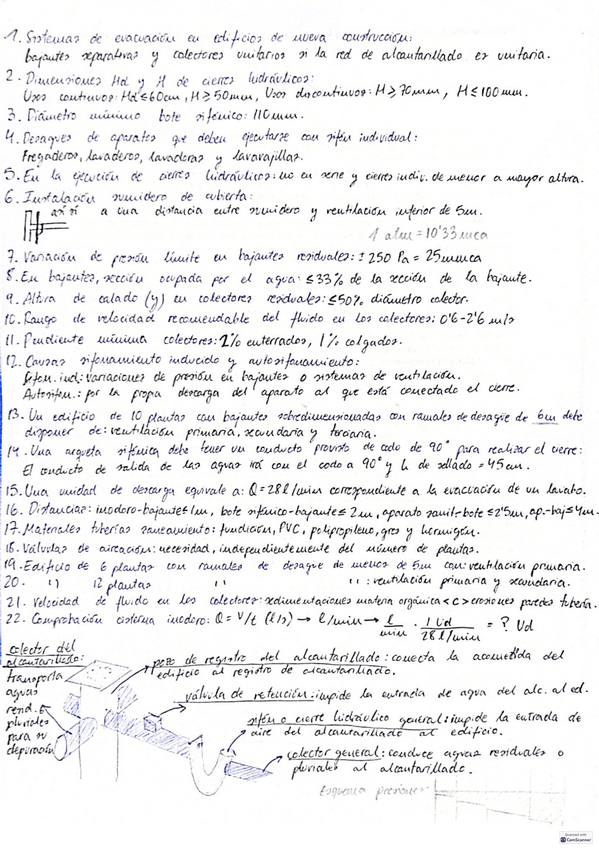 1. Sistemas de evacuación en edificios de nueva construcción:
bajantes separativas y colectores unitarios si la red de alcantarillado es unitaria.
2. Dimensiones Hd y H de cierres hidráulicos:
Usos continuos: Hd≤60cm, H≥50mm, Usos discontinuos: H≥70mm, H≤100mm.
3. Diámetro mínimo bote sifónico: 110mm.
4. Desagües de aparatos que deben ejecutarse con sifón individual:
Fregaderos, lavaderos, lavadoras y lavavajillas.
5. En la ejecución de cierres hidráulicos: no en serie y cierres indiv. de menor a mayor altura.
6. Instalación sumidero de cubierta:
así sí a una distancia entre sumidero y ventilación inferior de 5m.
1 atm = 10'33 mca
7. Variación de presión límite en bajantes residuales: ± 250 Pa = 25mmca
8. En bajantes, sección ocupada por el agua: ≤33% de la sección de la bajante.
9. Altura de calado (y) en colectores residuales: ≤50% diámetro colector.
10. Rango de velocidad recomendable del fluido en los colectores: 0'6-2'6 m/s
11. Pendiente mínima colectores: 2% enterrados, 1% colgados.
12. Causas sifonamiento inducido y autosifonamiento:
Sifon. ind: variaciones de presión en bajantes o sistemas de ventilación.
Autosifon.: por la propia descarga del aparato al que está conectado el cierre.
13. Un edificio de 10 plantas con bajantes sobredimensionadas con ramales de desagüe de 6m debe
disponer de: ventilación primaria, secundaria y terciaria.
14. Una arqueta sifónica debe tener un conducto provisto de codo de 90° para realizar el cierre:
El conducto de salida de las aguas irá con el codo a 90° y h de sellado = 45cm.
15. Una unidad de descarga equivale a: Q=28 l/min correspondiente a la evacuación de un lavabo.
16. Distancias: inodoro-bajante≤1m, bote sifónico-bajante≤2m, aparato sanit-bote≤2'5m, ap-baj≤4m.
17. Materiales tuberías saneamiento: fundición, PVC, polipropileno, gres y hormigón.
18. Válvulas de aireación: necesidad, independientemente del número de plantas.
19. Edificio de 6 plantas con ramales de desagüe de menos de 5m con: ventilación primaria.
20. " 12 plantas " " : ventilación primaria y secundaria.
21. Velocidad de fluido en los colectores: sedimentaciones materia orgánica < c > erosiones paredes tubería.
22. Comprobación cisterna inodoro: Q = V/t (l/s) → l/min → l/min · 1 Ud/28 l/min = ? Ud
colector del
alcantarillado:
transporta
aguas
resid. o
pluviales
para su
depuración
pozo de registro del alcantarillado: conecta la acometida del
edificio al registro de alcantarillado.
válvula de retención: impide la entrada de agua del alc. al ed.
sifón o cierre hidráulico general: impide la entrada de
aire del alcantarillado al edificio.
colector general: conduce aguas residuales o
pluviales al alcantarillado.
Esquema presiones
Scanned with
CamScanner